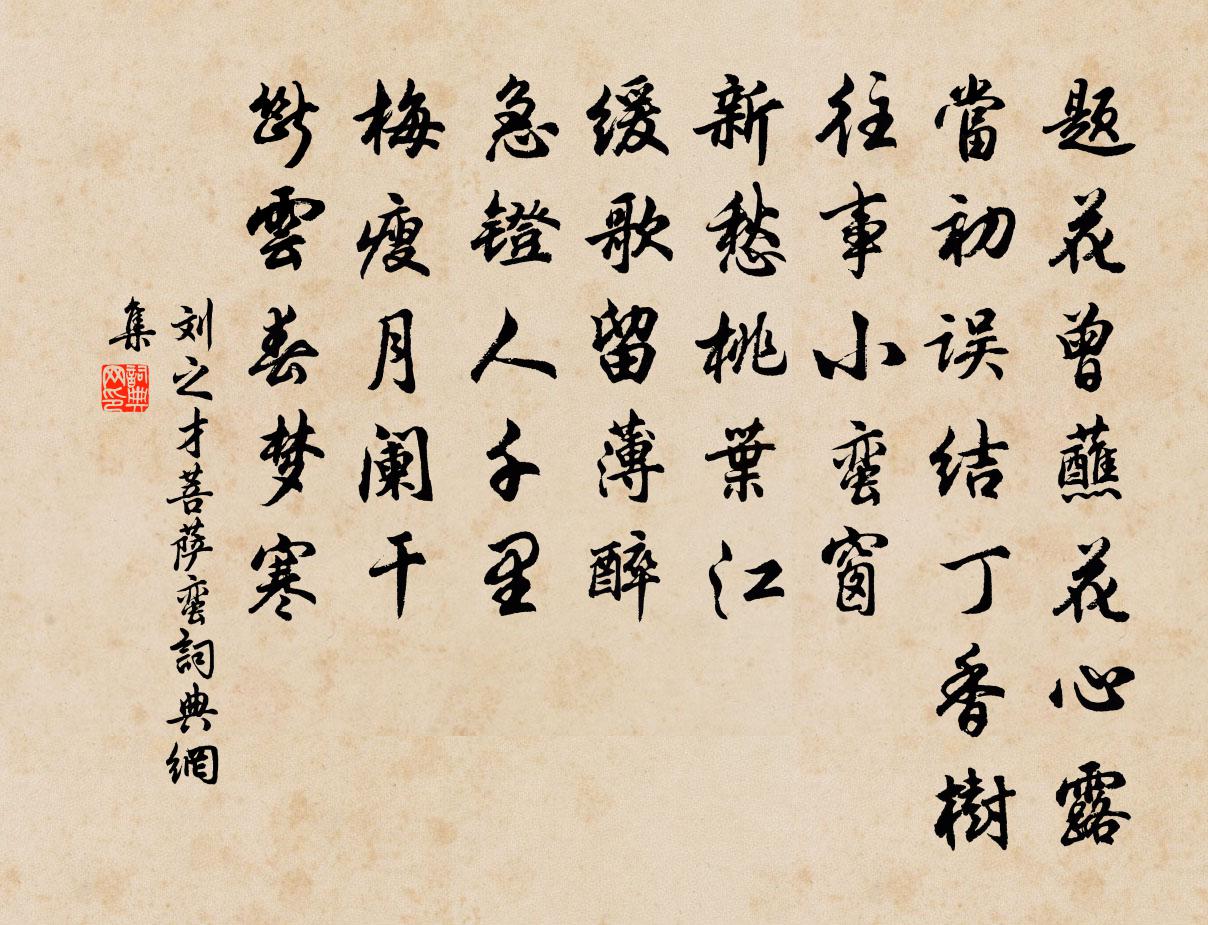 题花曾蘸花心露
當初误结丁香樹
往事小蛮窗
新愁桃葉江
缓歌留薄醉
急镫人千里
梅瘦月阑干
断雲春梦寒
刘之才菩萨蛮詞典網
集
詞典
网印